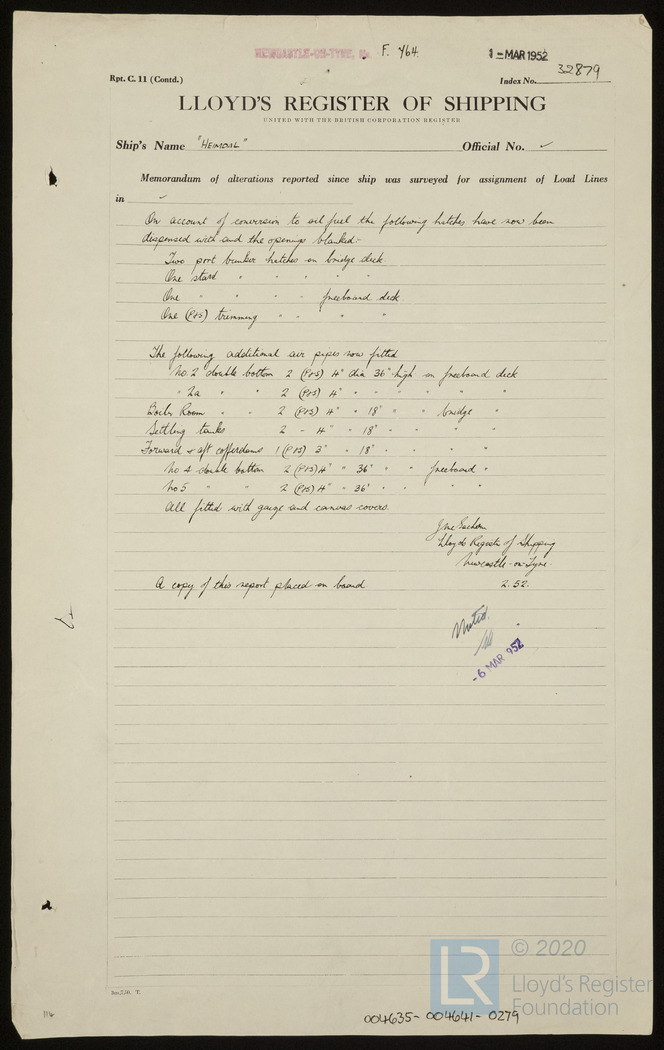 NEWCASTLE-ON-TYNE, F. 464.
1 - MAR 1952
Rpt. C. 11 (Contd.)
Index No. 32879
LLOYD'S REGISTER OF SHIPPING
UNITED WITH THE BRITISH CORPORATION REGISTER
Ship's Name "HEIMDAL" Official No. ✓
Memorandum of alterations reported since ship was surveyed for assignment of Load Lines
in ✓
On account of conversion to oil fuel the following hatches have now been
dispensed with and the openings blanked:-
Two port bunker hatches on bridge deck
One starb " " " "
One " " " freeboard deck
One (P&S) trimming " " " "
The following additional air pipes now fitted
No.2 double bottom 2 (P&S) 4" dia 36" high on freeboard deck
" 2a " " 2 (P&S) 4" " " " " "
Boiler Room " " 2 (P&S) 4" " 18" " " bridge "
Settling tanks 2 - 4" " 18" " " " "
Forward & aft cofferdams 1 (P&S) 3" " 18" " " " "
No 4 double bottom 2 (P&S) 4" " 36" " " freeboard "
No 5 " " 2 (P&S) 4" " 36" " " " "
All fitted with gauze and canvas covers.
Lloyds Register of Shipping
Newcastle-on-Tyne.
A copy of this report placed on board. 2.52.
Noted
- 6 MAR 1952
© 2020
LR Lloyd's Register
Foundation
004635-004641-0279